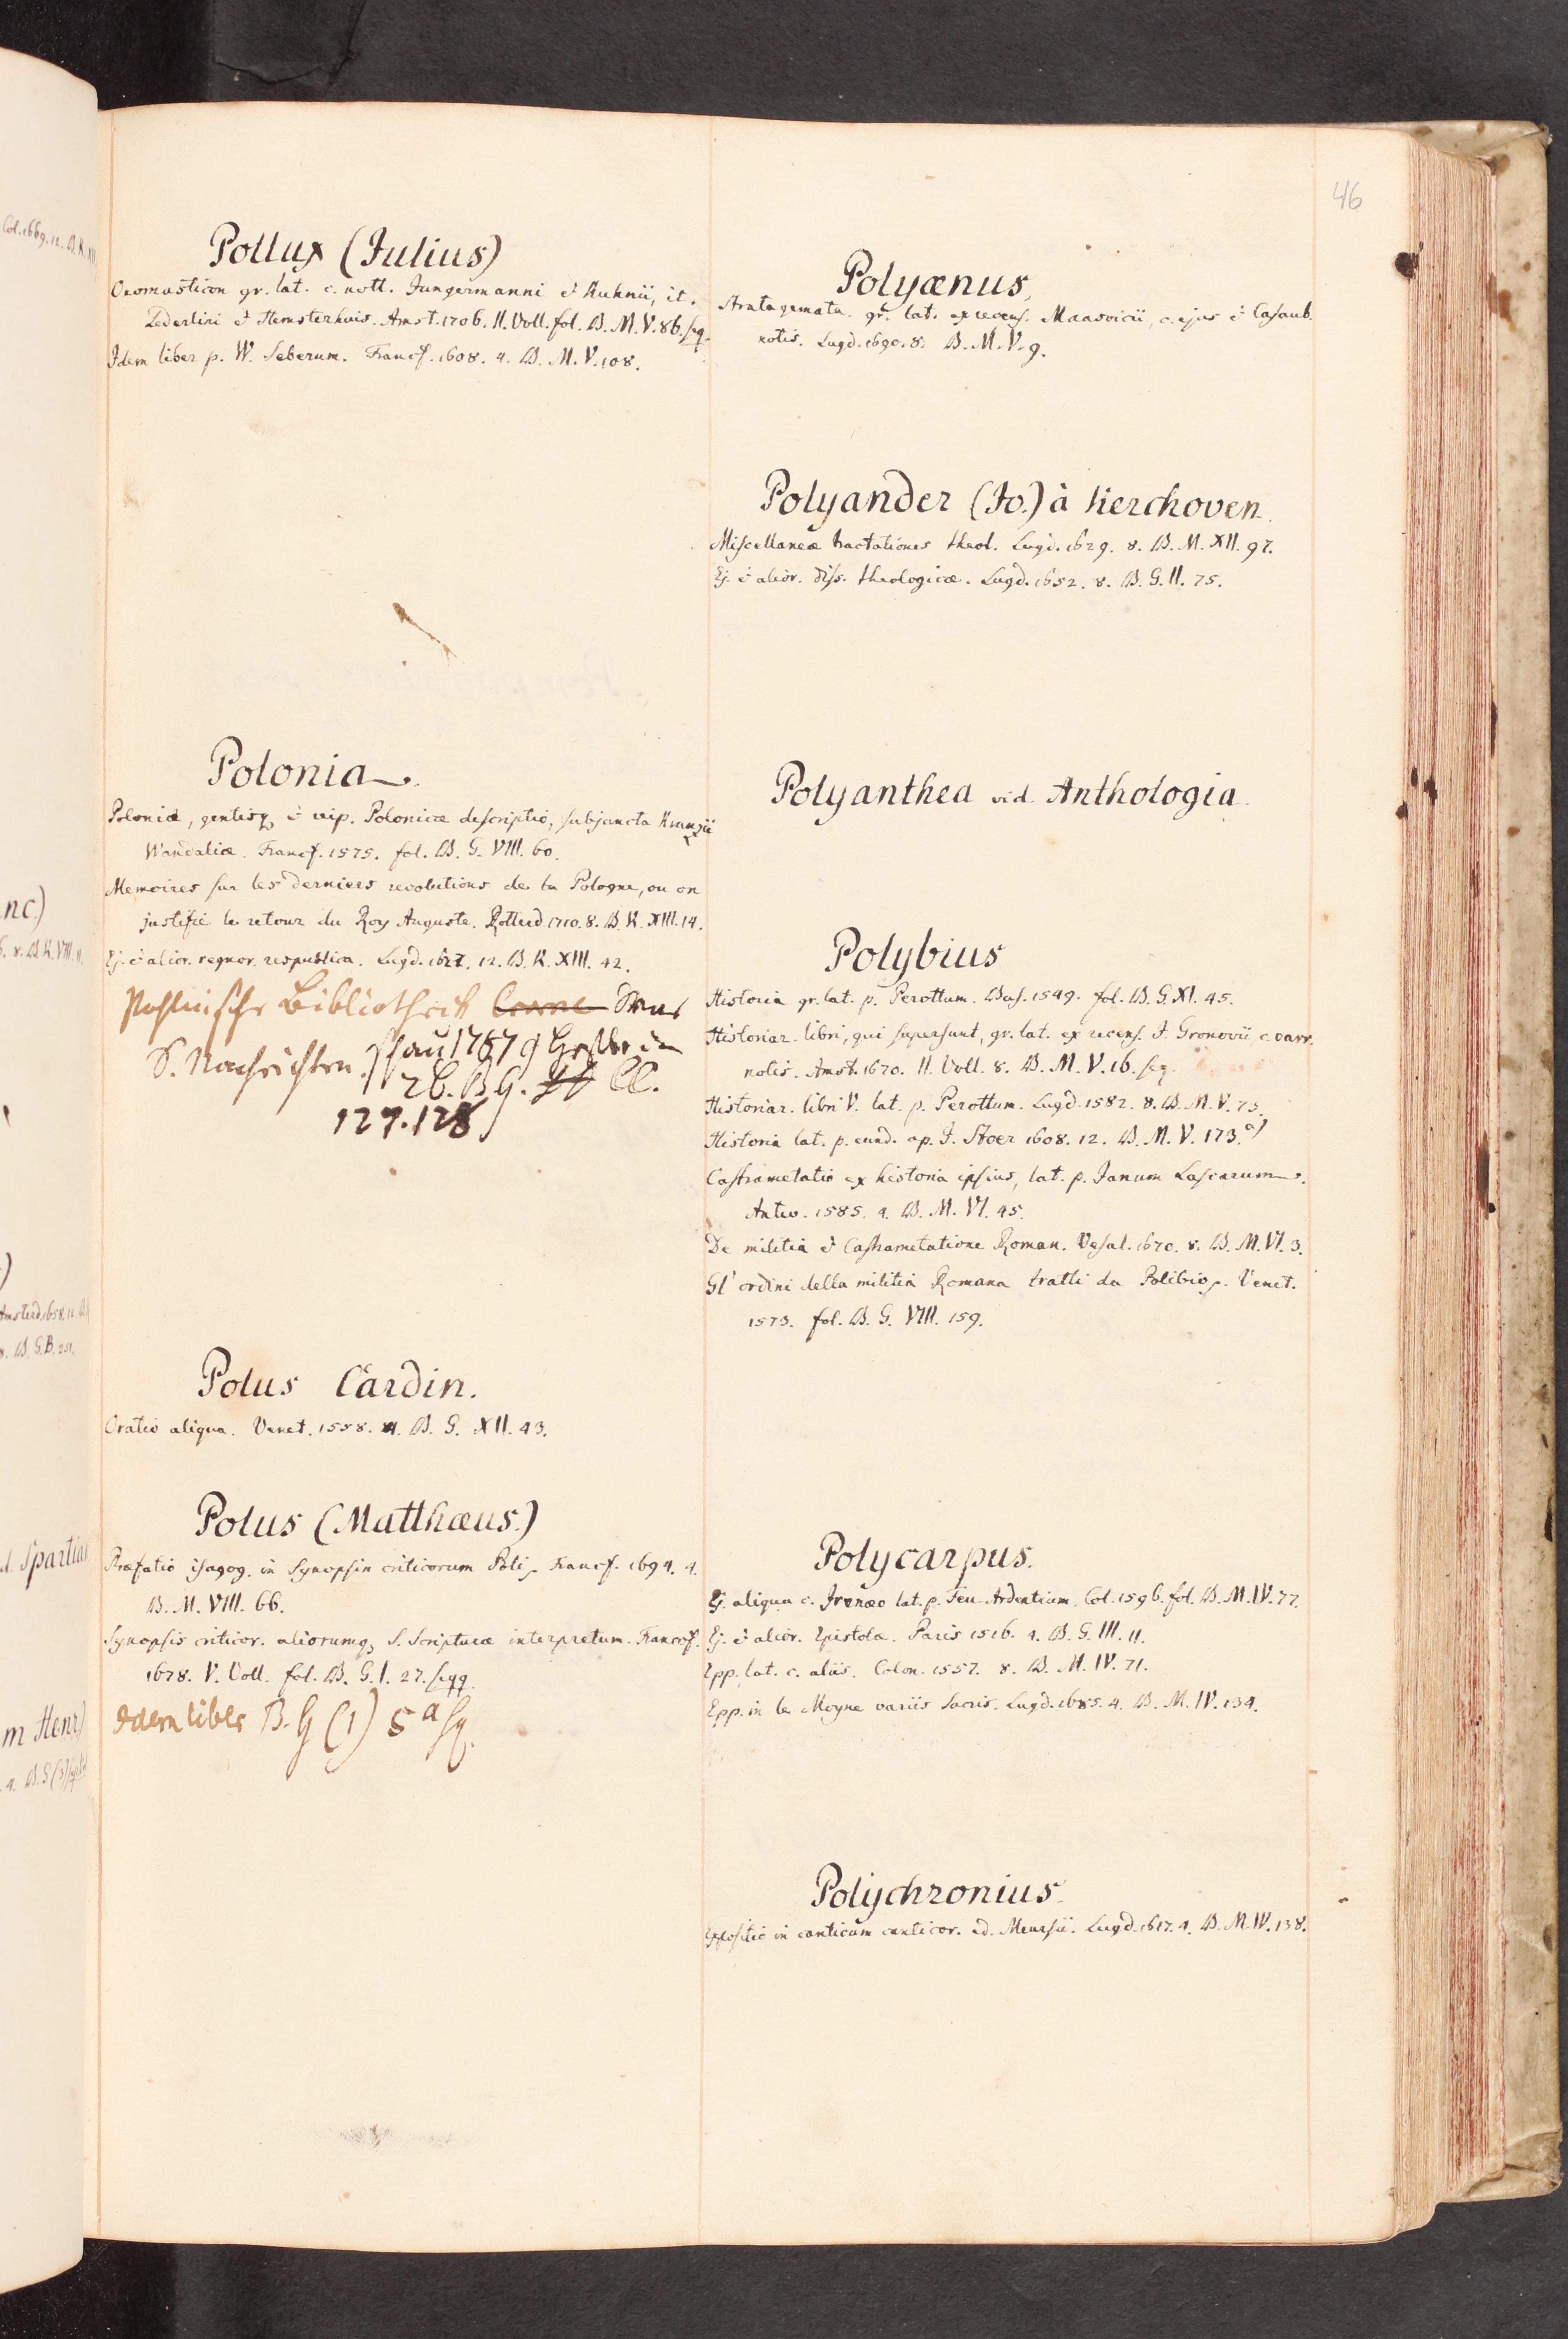 46
Pollux (Julius)
Onomasticon gr. lat. c. nott. Jungermanni & Kuhnii, it.
Lederlini & Hemsterhuis. Amst. 1706. II. Voll. fol. B. M. V. 86. seq.
Idem liber p. W. Seberum. Francf. 1608. 4. B. M. V. 108.
Polonia.
Poloniæ, gentisq, & reip. Polonicæ descriptio, subjuncta Kranzii
Wandaliæ. Francf. 1575. fol. B. G. VIII. 60.
Memoires sur les derniers revolutions de la Pologne, ou on
justifie le retour du Roy Auguste. Rotterd. 1710. 8. B. K. XIII. 14.
Ej. & alior. regnor. respublica. Lugd. 1627. 12. B. K. XIII. 42.
Pohlnische Bibliotheck
S. Nachrichten 1757
2b. B G. CC.
127.128
Polus Cardin.
Oratio aliqua. Venet. 1558. 4. B. G. XII. 43.
Polus (Matthæus.)
Præfatio isagog. in Synopsin criticorum Poli. Francf. 1694. 4.
B. M. VIII. 66.
Synopsis criticor. aliorumq, S. Scripturæ interpretum. Francof.
1678. V. Voll. fol. B. G. I. 27. seqq.
Idem liber B. G (1) 5 a sq.
Polyænus.
Stratagemata gr. lat. ex recens. Maasvicii, c. ejus & Casaub.
notis. Lugd. 1690. 8. B. M. V. 9.
Polyander (Jo.) à Kerchoven.
Miscellaneæ tractationes theol. Lugd. 1629. 8. B. M. XII. 97.
Ej. & alior. diss. theologicæ. Lugd. 1652. 8. B. G. II. 75.
Polyanthea vid. Anthologia.
Polybius
Historia gr. lat. p. Perottum. Bas. 1549. fol. B. G. XI. 45.
Historiar. libri, qui supersunt, gr. lat. ex recens. J. Gronovii c. varr.
notis. Amst. 1670. II. Voll. 8. B. M. V. 16. seq.
Historiar. libri V. lat. p. Perottum. Lugd. 1582. 8. B. M. V. 73.
Historia lat. p. eund. ap. J. Stoer 1608. 12. B. M. V. 173. a)
Castrametatio ex historia ipsius, lat. p. Janum Lascarum.
Antw. 1585. 4. B. M. VI. 45.
De militia & Castrametatione Roman. Vesal. 1670. 8. B. M. VI. 3.
Gl' ordini della militia Romana tratti da Polibio. Venet.
1573. fol. B. G. VIII. 159.
Polycarpus.
Ej. aliqua c. Irenæo lat. p. Feu-Ardentium. Col. 1596. fol. B. M. IV. 77.
Ej. & alior. Epistolæ. Paris 1516. 4. B. G. III. 11.
Epp. lat. c. aliis. Colon. 1557. 8. B. M. IV. 71.
Epp. in le Moyne variis Sacris. Lugd. 1685. 4. B. M. IV. 134.
Polychronius.
Expositio in canticum canticor. ed. Meursii. Lugd. 1617. 4. B. M. IV. 138.